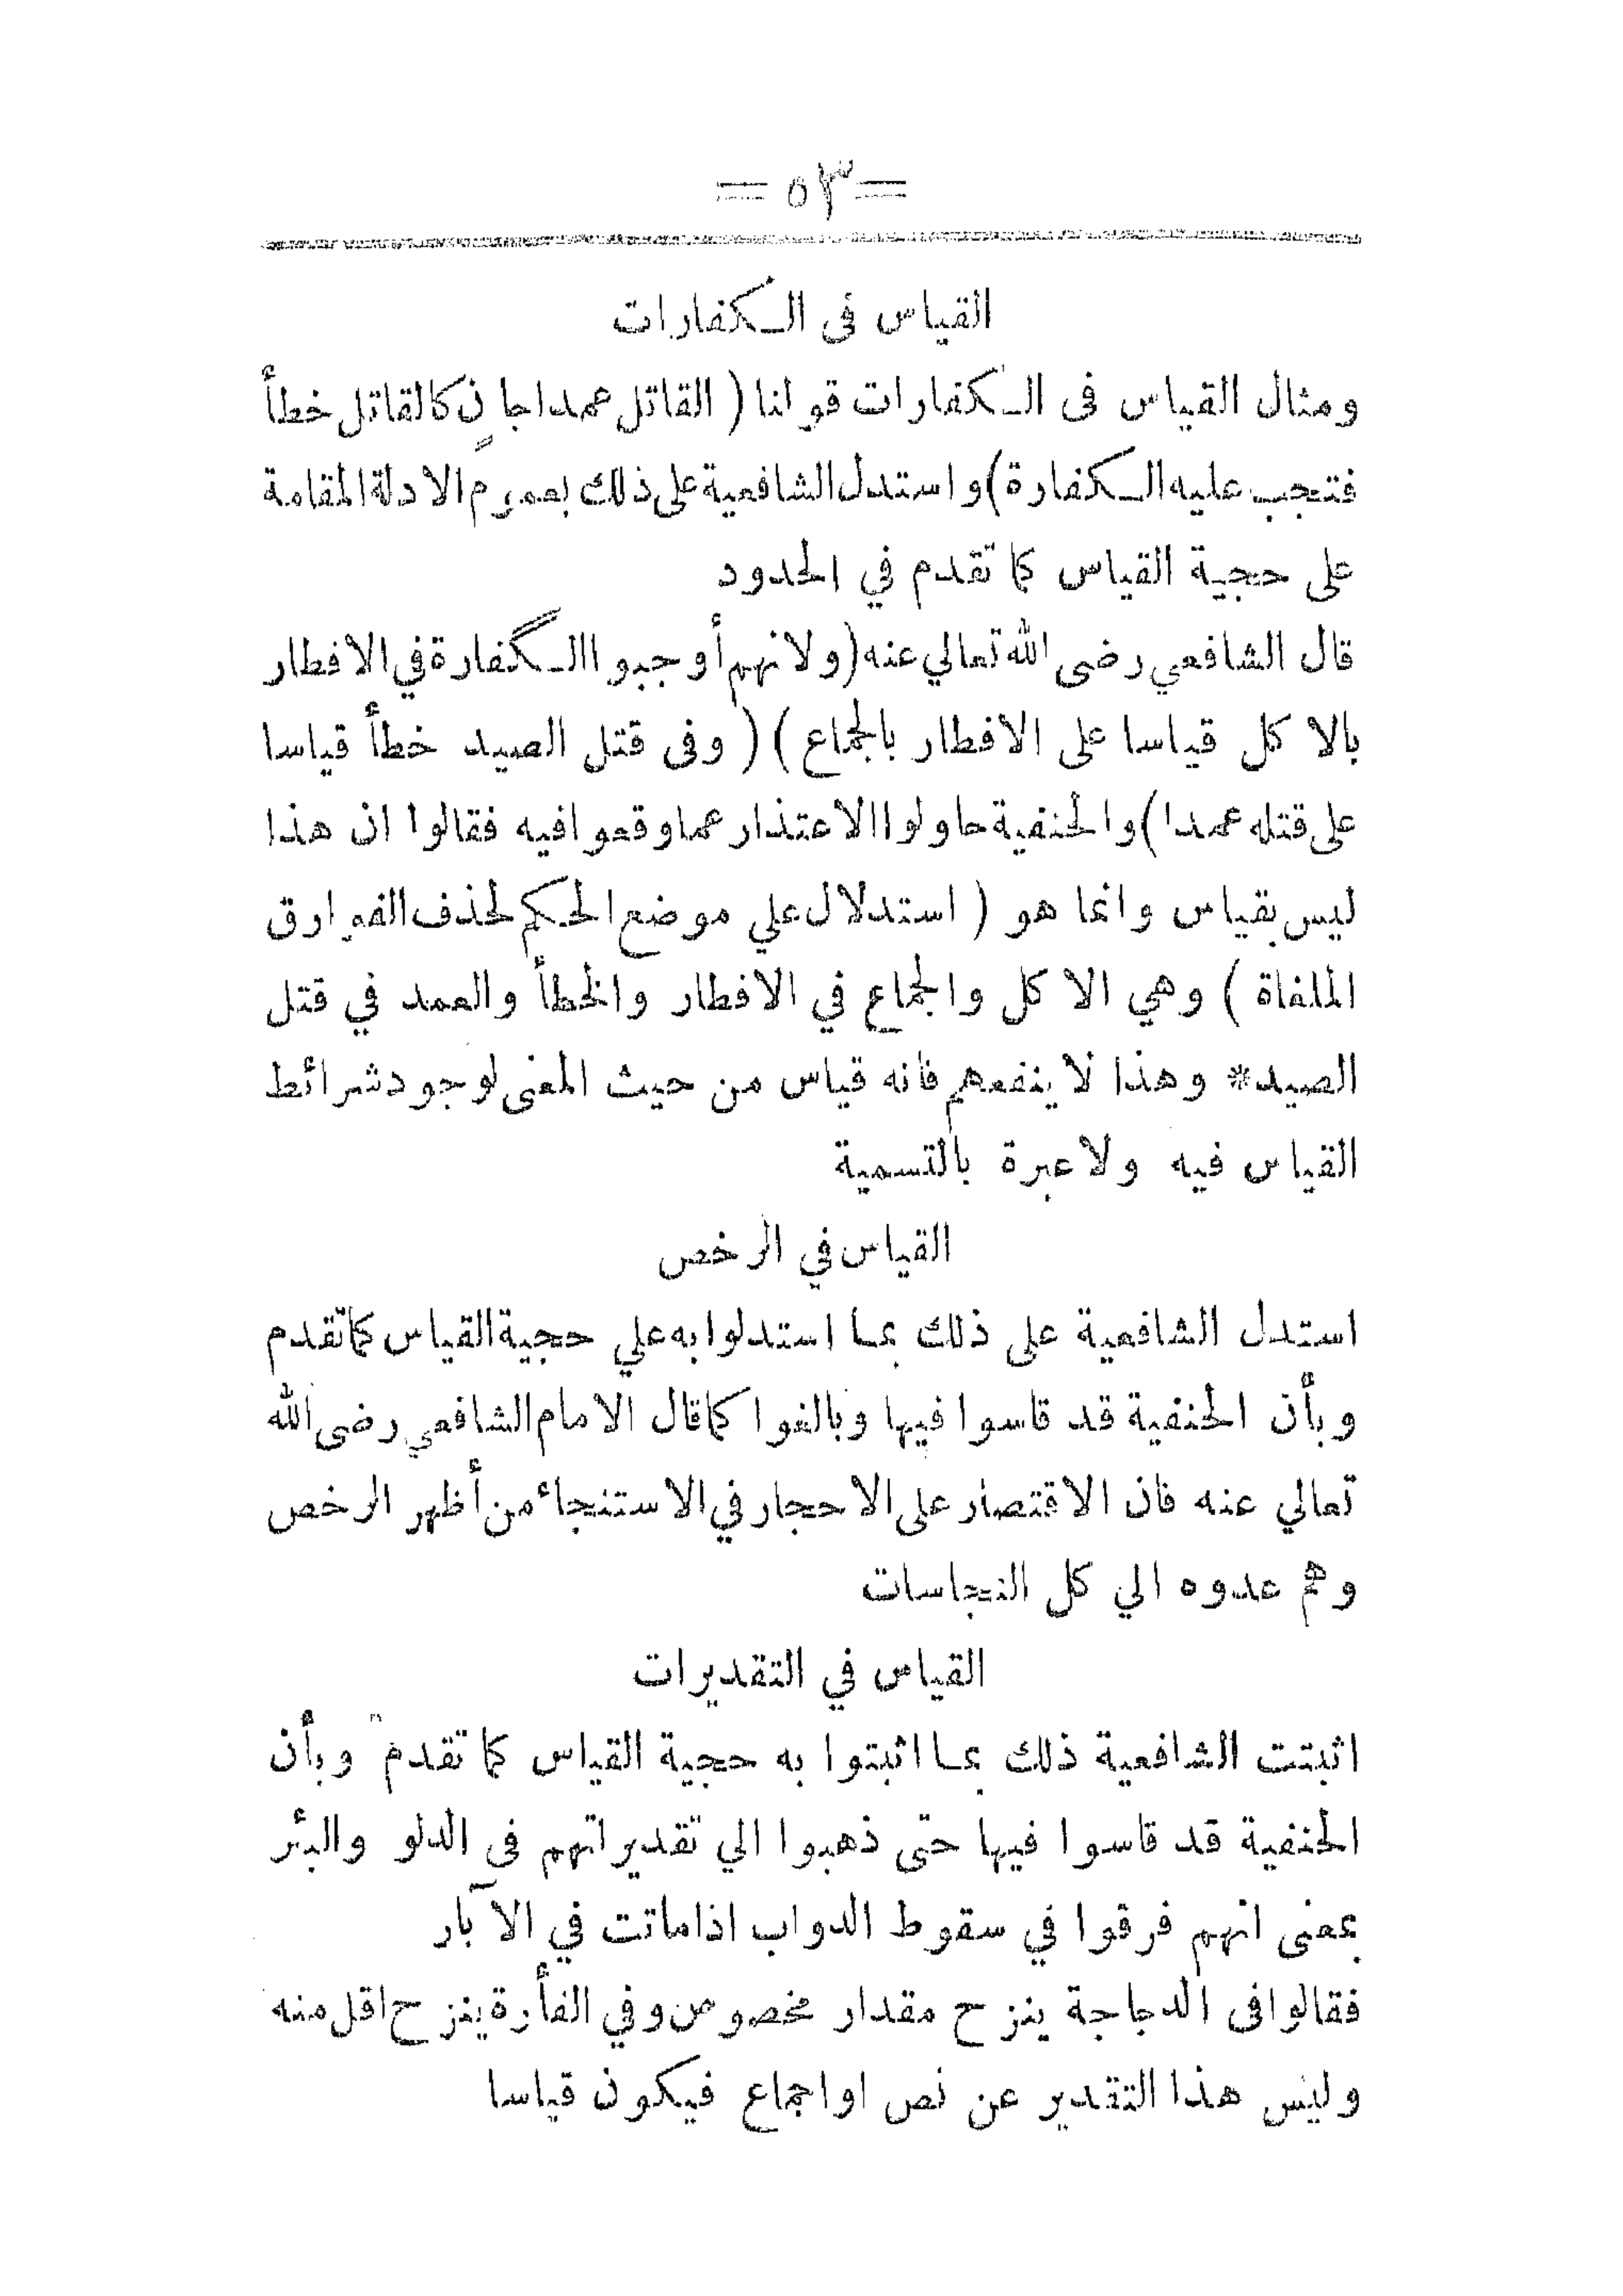 = ٥٣ =
القياس فى الكفارات
ومثال القياس فى الكفارات قولنا ( القاتل عمدا جان كالقاتل خطأ
فتجب عليه الكفارة) واستدل الشافعية على ذلك بعموم الادلة المقامة
على حجية القياس كما تقدم في الحدود
قال الشافعي رضى الله تعالي عنه (ولانهم أوجبوا الكفارة في الافطار
بالاكل قياسا على الافطار بالجماع ) ( وفى قتل الصيد خطأ قياسا
على قتله عمدا ) والحنفية حاولوا الاعتذار عما وقعوا فيه فقالوا ان هذا
ليس بقياس وانما هو ( استدلال علي موضع الحكم لحذف الفوارق
الملغاة ) وهي الاكل والجماع في الافطار والخطأ والعمد في قتل
الصيد * وهذا لا ينفعهم فانه قياس من حيث المعنى لوجود شرائط
القياس فيه ولا عبرة بالتسمية
القياس في الرخص
استدل الشافعية على ذلك بما استدلوا به علي حجية القياس كما تقدم
وبأن الحنفية قد قاسوا فيها وبالغوا كما قال الامام الشافعي رضى الله
تعالي عنه فان الاقتصار على الاحجار في الاستنجاء من أظهر الرخص
وهم عدوه الي كل النجاسات
القياس في التقديرات
اثبتت الشافعية ذلك بما اثبتوا به حجية القياس كما تقدم وبأن
الحنفية قد قاسوا فيها حتى ذهبوا الي تقديراتهم فى الدلو والبئر
بمعنى انهم فرقوا في سقوط الدواب اذا ماتت في الآبار
فقالوا فى الدجاجة ينزح مقدار مخصوص وفي الفأرة ينزح اقل منه
وليس هذا التقدير عن نص او اجماع فيكون قياسا